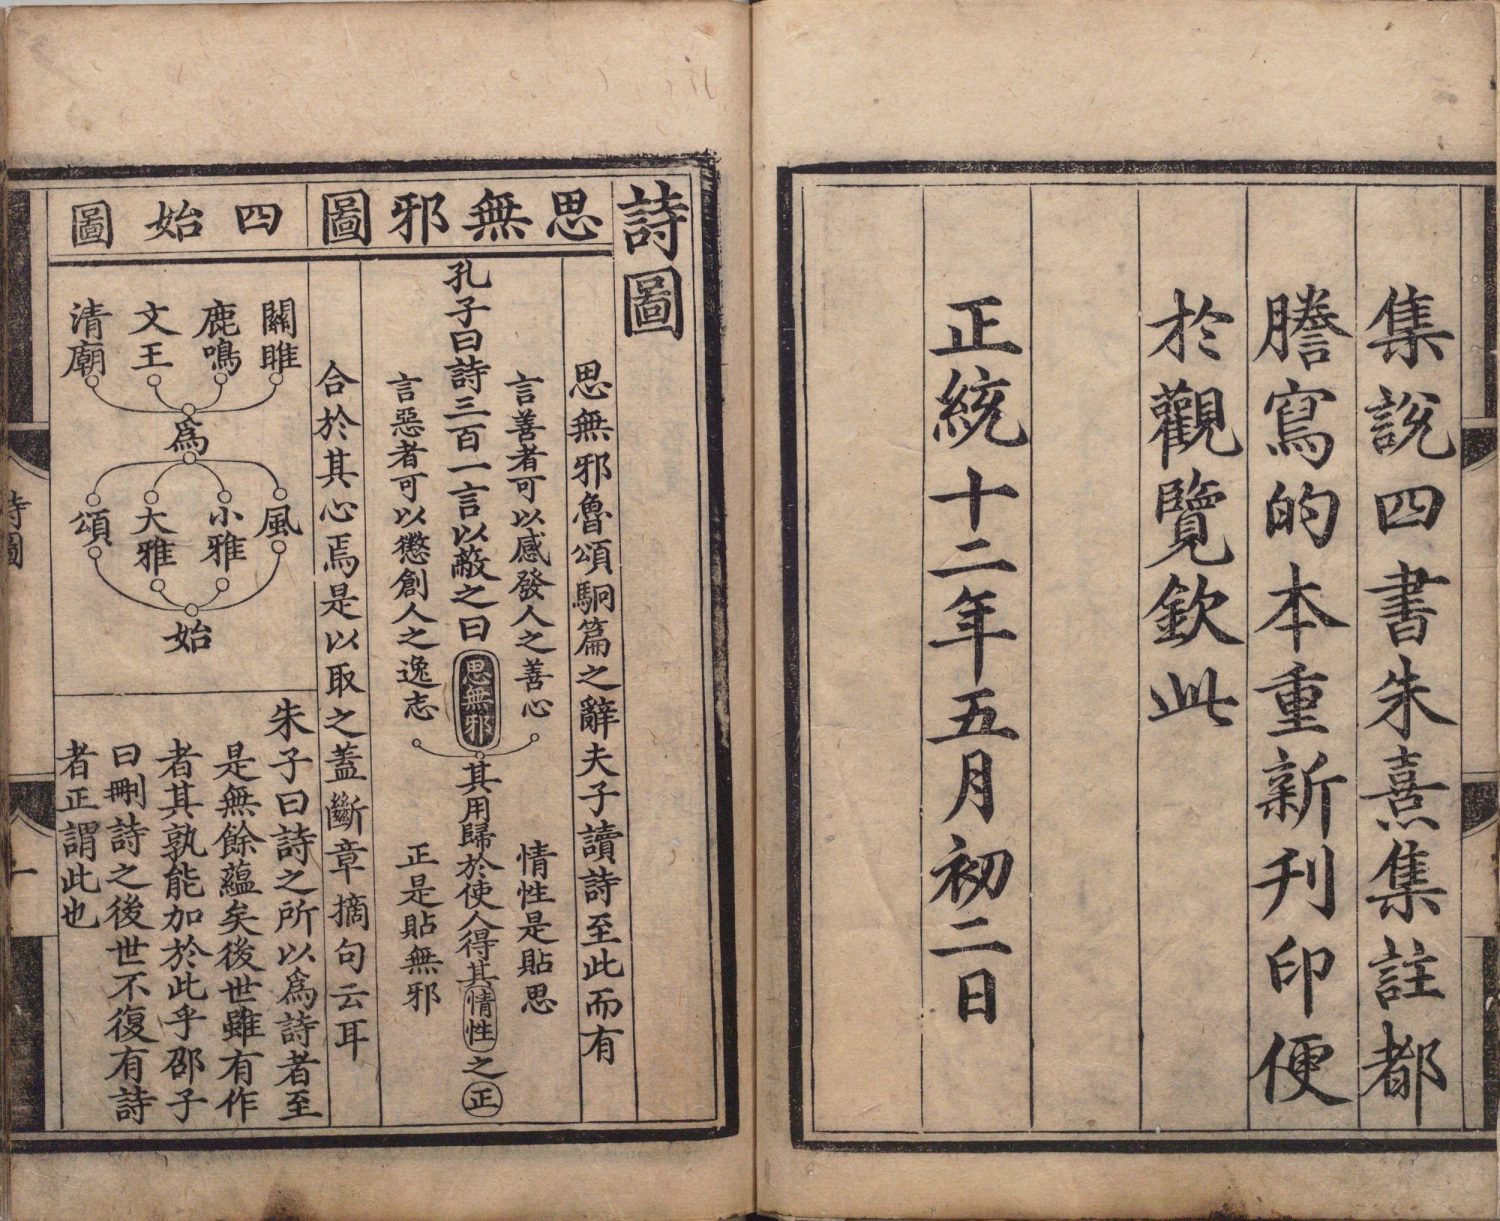 集說四書朱熹集註都
謄寫的本重新刋印便
於觀覽欽此
正統十二年五月初二日
詩圖
思無邪圖
思無邪魯頌駉篇之辭夫子讀詩至此而有
言善者可以感發人之善心
情性是貼思
孔子曰詩三百一言以蔽之曰思無邪其用歸於使人得其情性之正
言惡者可以懲創人之逸志
正是貼無邪
合於其心焉是以取之蓋斷章摘句云耳
四始圖
關雎
鹿鳴
文王
清廟
為
風
小雅
大雅
頌
始
朱子曰詩之所以為詩者至
是無餘蘊矣後世雖有作
者其孰能加於此乎邵子
曰刪詩之後世不復有詩
者正謂此也
詩圖
一